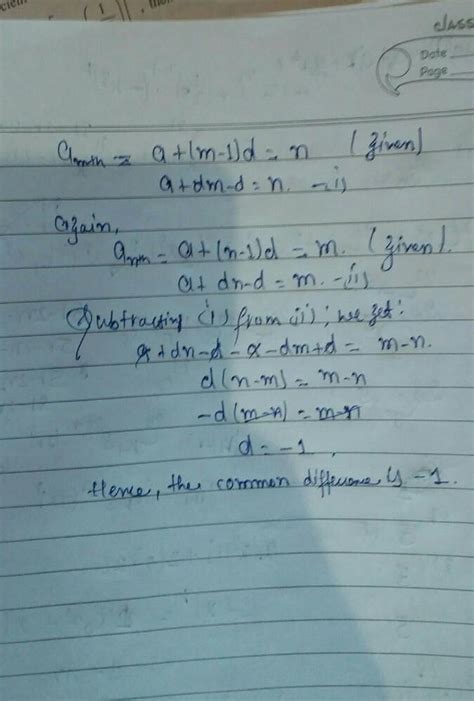 CLASS
Date
Page
a_mth = a+(m-1)d = n (given)
a+dm-d = n. -i)
Again,
a_nth = a+(n-1)d = m. (given).
a+ dn-d = m. -ii)
Subtracting (i) from (ii); we get:
a+dn-d-a-dm+d = m-n.
d(n-m) = m-n
-d(m-n) = m-n
d = -1.
Hence, the common difference is -1.